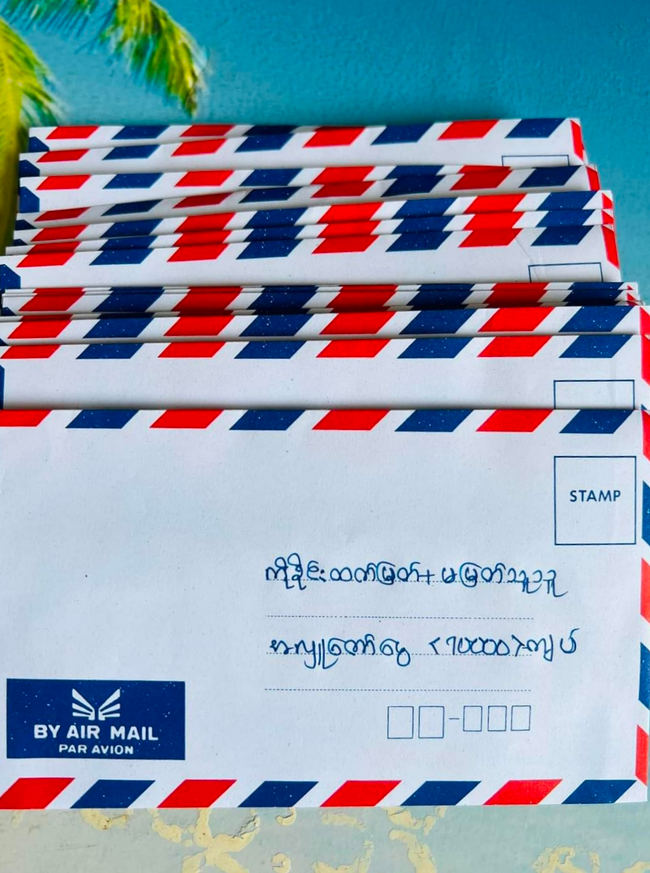 STAMP
ကိုခိုင်းထက်မြတ်+မမြတ်သူဇူ
အလှူတော်ငွေ <၅၀၀၀၀>ကျပ်
BY AIR MAIL
PAR AVION